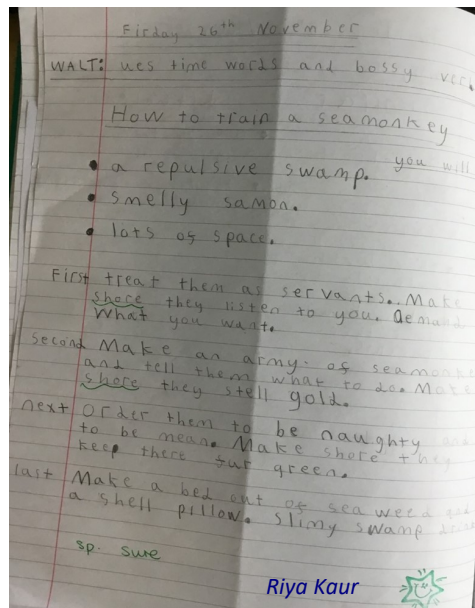 Firday 26th November
WALT: ues time words and bossy ver
How to train a seamonkey
you will
• a repulsive swamp.
• smelly samon.
• lots of space.
First treat them as servants. Make
shore they listen to you. Deman
What you want.
second Make an army of seamonke
and tell them what to do. Make
shore they stell gold.
next order them to be naughty and
to be mean. Make shore they
keep there fur green.
last Make a bed out of sea weed and
a shell pillow. Slimy swamp
sp. sure
Riya Kaur